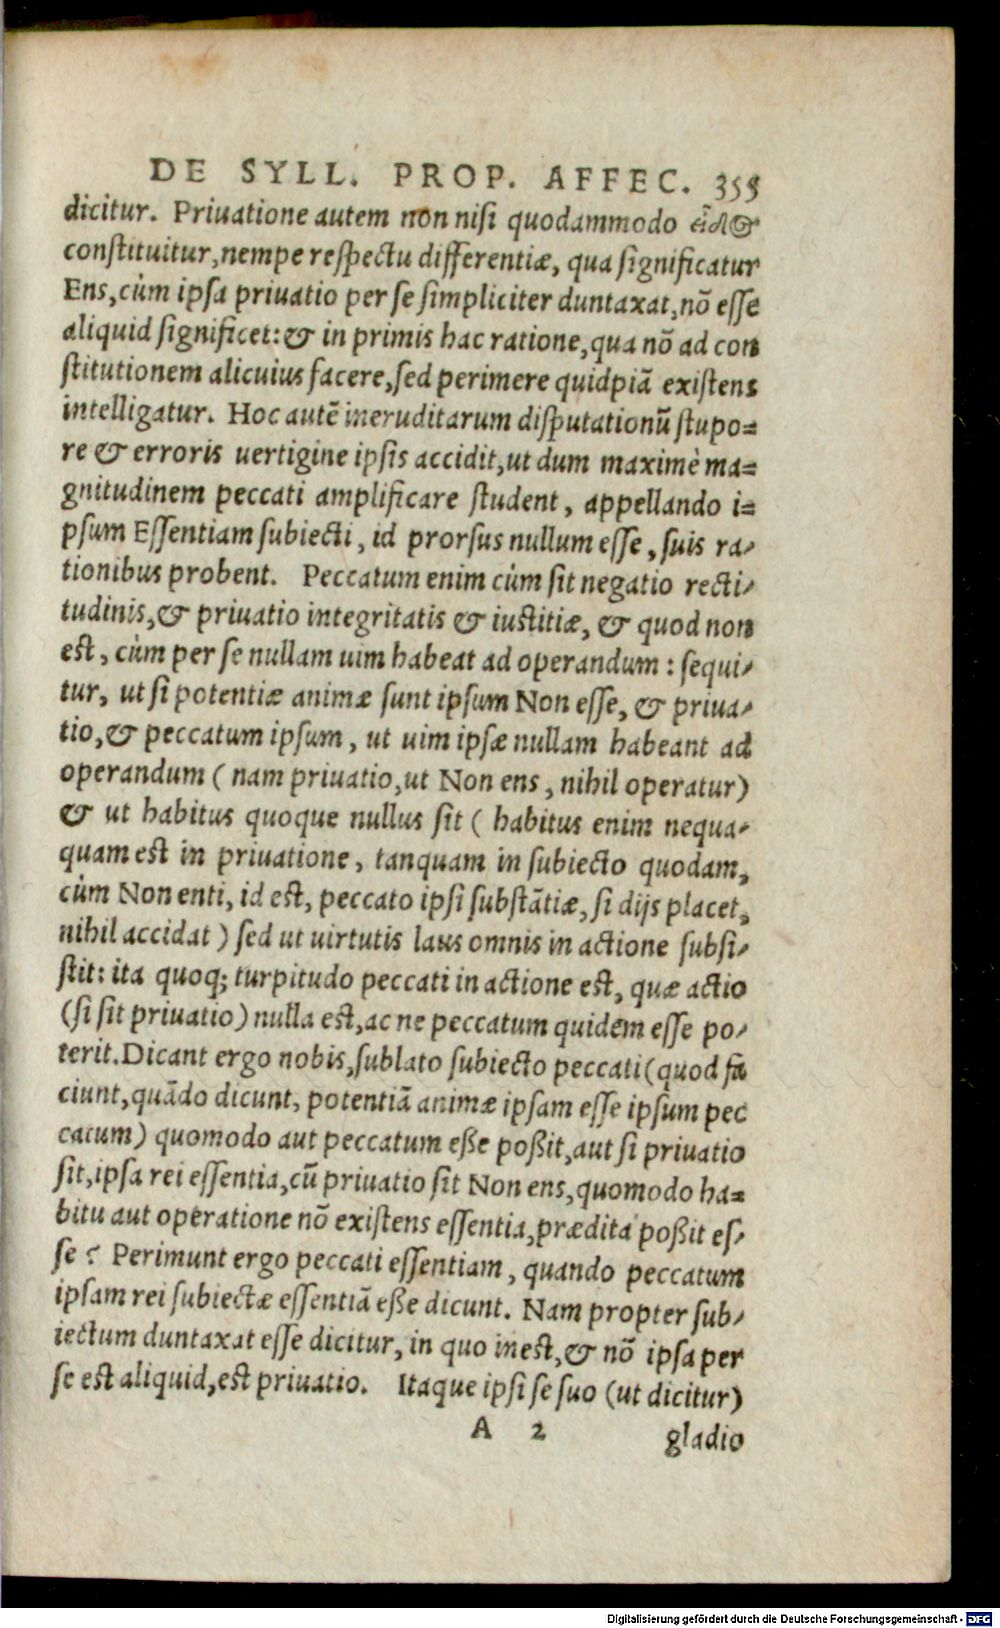 DE SYLL. PROP. AFFEC. 355
dicitur. Priuatione autem non nisi quodammodo εἶδος
constituitur, nempe respectu differentiæ, qua significatur
Ens, cùm ipsa priuatio per se simpliciter duntaxat, nō esse
aliquid significet: & in primis hac ratione, qua nō ad con
stitutionem alicuius facere, sed perimere quidpiā existens
intelligatur. Hoc autē ineruditarum disputationū stupo=
re & erroris uertigine ipsis accidit, ut dum maximè ma=
gnitudinem peccati amplificare student, appellando i=
psum Essentiam subiecti, id prorsus nullum esse, suis ra-
tionibus probent. Peccatum enim cùm sit negatio recti-
tudinis, & priuatio integritatis & iustitiæ, & quod non
est, cùm per se nullam uim habeat ad operandum: sequi-
tur, ut si potentiæ animæ sunt ipsum Non esse, & priua-
tio, & peccatum ipsum, ut uim ipsæ nullam habeant ad
operandum (nam priuatio, ut Non ens, nihil operatur)
& ut habitus quoque nullus sit (habitus enim nequa-
quam est in priuatione, tanquam in subiecto quodam,
cùm Non enti, id est, peccato ipsi substātiæ, si dijs placet,
nihil accidat) sed ut uirtutis laus omnis in actione subsi-
stit: ita quoq; turpitudo peccati in actione est, quæ actio
(si sit priuatio) nulla est, ac ne peccatum quidem esse po-
terit. Dicant ergo nobis, sublato subiecto peccati (quod fa
ciunt, quādo dicunt, potentiā animæ ipsam esse ipsum pec
catum) quomodo aut peccatum eße poßit, aut si priuatio
sit, ipsa rei essentia, cū priuatio sit Non ens, quomodo ha=
bitu aut operatione nō existens essentia, prædita poßit es-
se? Perimunt ergo peccati essentiam, quando peccatum
ipsam rei subiectæ essentiā eße dicunt. Nam propter sub-
iectum duntaxat esse dicitur, in quo inest, & nō ipsa per
se est aliquid, est priuatio. Itaque ipsi se suo (ut dicitur)
A 2 gladio
Digitalisierung gefördert durch die Deutsche Forschungsgemeinschaft - DFG